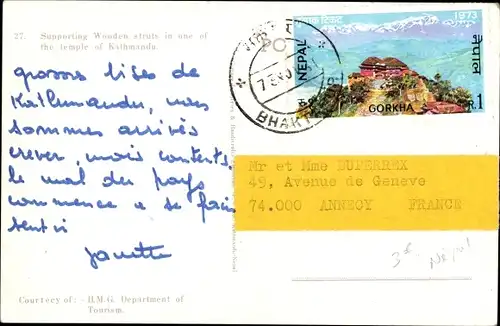 27. Supporting Wooden struts in one of
the temple of Kathmandu.
grosses bises de
Kathmandu, nous
sommes arrivés
crever, mais contents.
le mal du pays
commence a se faire
sentir
Mr et Mme DUPERREX
49, Avenue de Geneve
74.000 ANNECY FRANCE
NEPAL
1973
नेपाल
GORKHA
R.1
BHAKT
3€ Népal
Courtesy of:- H.M.G. Department of
Tourism.